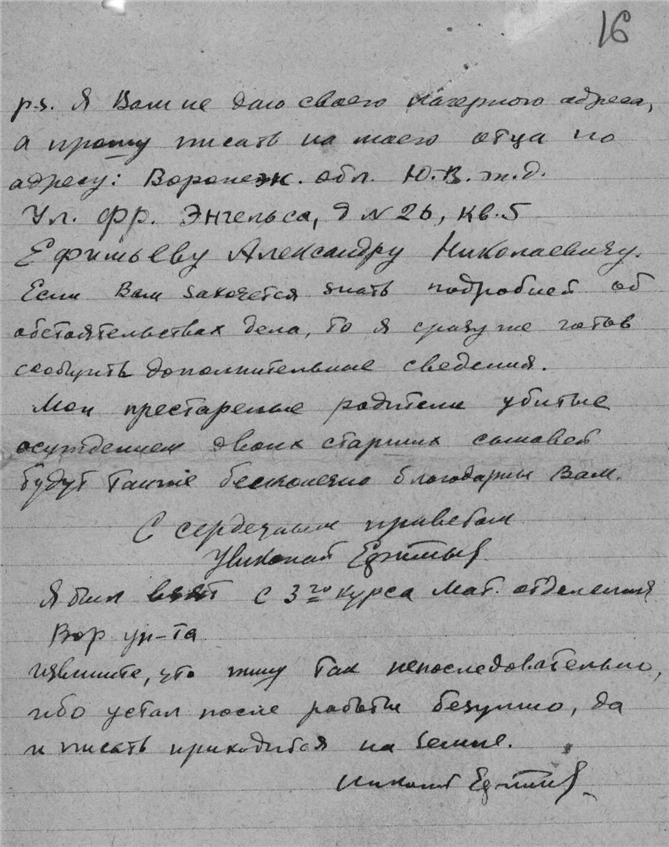 16
p.s. Я Вам не даю своего лагерного адреса,
а прошу писать на моего отца по
адресу: Воронеж. обл. Ю.В.ж.д.
Ул. Фр. Энгельса, д N 26, кв. 5
Ефимьеву Александру Николаевичу.
Если Вам захочется знать подробней об
обстоятельствах дела, то я сразу же готов
сообщить дополнительные сведения.
Мои престарелые родители убитые
осуждением двоих старших сыновей
будут также бесконечно благодарны Вам.
С сердечным приветом
Николай Ефимьев
Я был взят с 3го курса Мат. отделения
Вор ун-та
извините, что пишу так непоследовательно,
ибо устал после работы безумно, да
и писать приходится на земле.
Николай Ефимьев